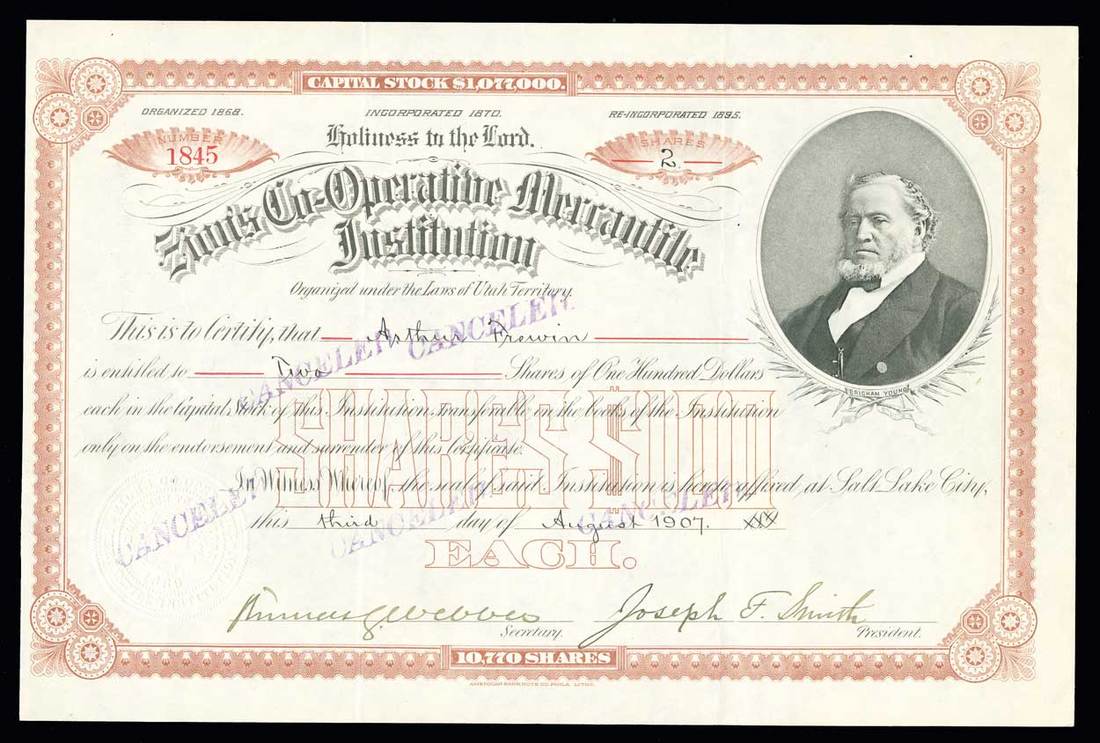 CAPITAL STOCK $1,077,000.
ORGANIZED 1868. INCORPORATED 1870. RE-INCORPORATED 1895.
NUMBER
1845
Holiness to the Lord.
SHARES
2
Zion's Co-Operative Mercantile
Institution
Organized under the Laws of Utah Territory.
This is to Certify, that Arthur Frewin
is entitled to Two Shares of One Hundred Dollars
each in the Capital Stock of this Institution transferable on the books of the Institution
only on the endorsement and surrender of this Certificate.
In Witness Whereof, the seal of said Institution is hereto affixed, at Salt Lake City,
this third day of August 1907.
SHARES $100
EACH.
BRIGHAM YOUNG
CANCELED
CANCELED
CANCELED
CANCELED
CANCELED
Secretary.
Joseph F. Smith
President.
10,770 SHARES
AMERICAN BANK NOTE CO. PHILA. LITHO.